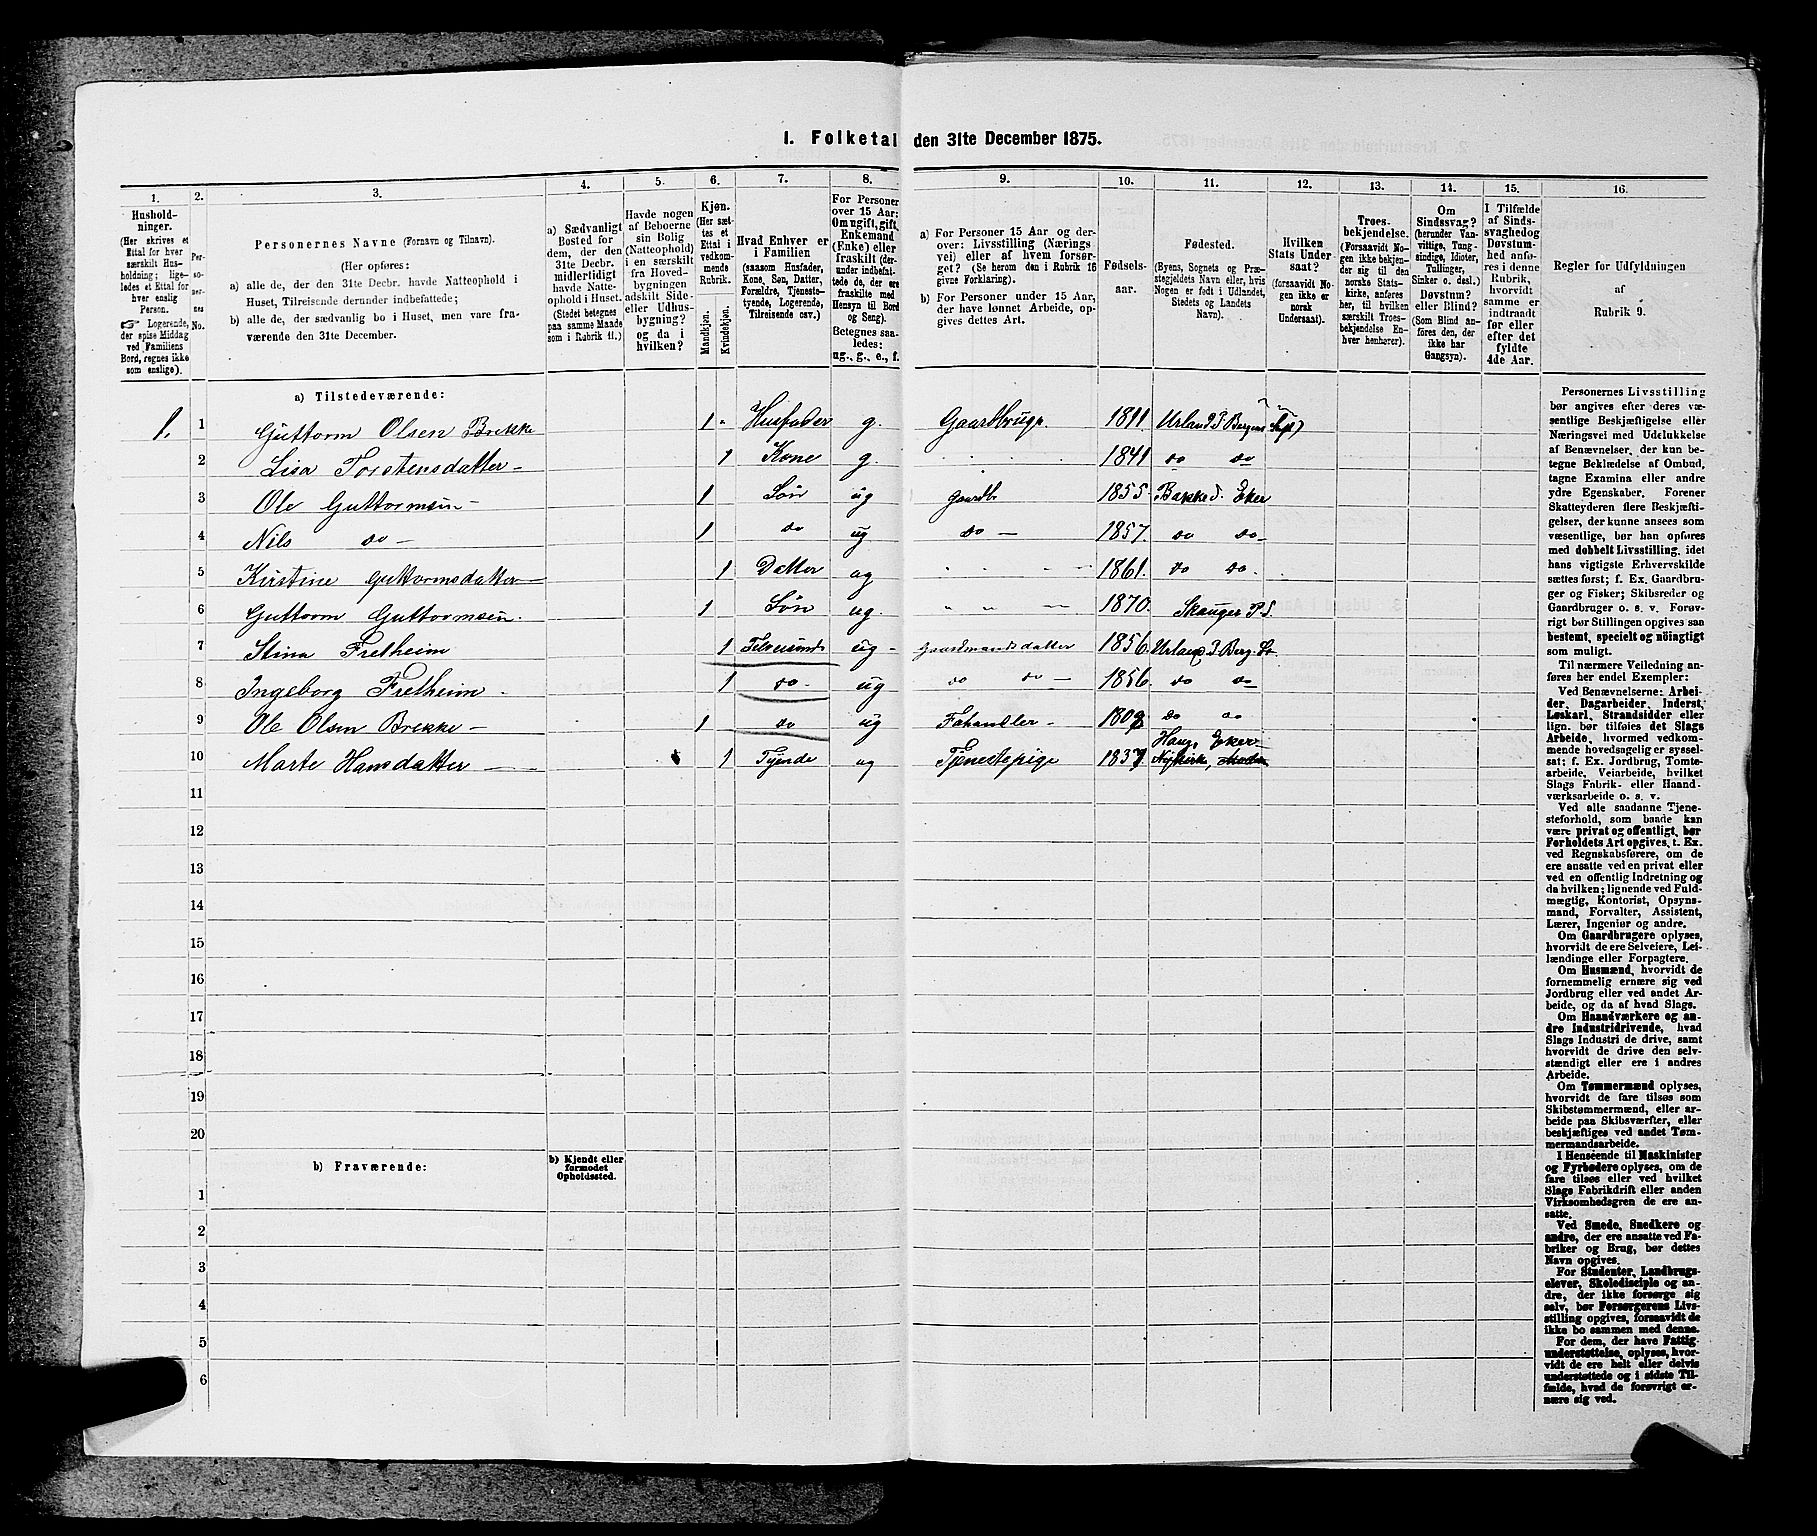 1. Folketal den 31te December 1875.
1.
Hushold-
ninger.
(Her skrives et
Ettal for hver
særskilt Hus-
holdning; lige-
ledes et Ettal for
hver enslig
Person.
☞ Logerende,
der spise Middag
ved Familiens
Bord, regnes ikke
som enslige).
2.
Per-
so-
ner-
nes
No.
3.
Personernes Navne (Fornavn og Tilnavn).
(Her opføres:
a) alle de, der den 31te Decbr. havde Natteophold i
Huset, Tilreisende derunder indbefattede;
b) alle de, der sædvanlig bo i Huset, men vare fra-
værende den 31te December.
4.
a) Sædvanligt
Bosted for
dem, der den
31te Decbr.
midlertidigt
havde Natte-
ophold i Huset.
(Stedet betegnes
paa samme Maade
som i Rubrik 11.)
5.
Havde nogen
af Beboerne
sin Bolig
(Natteophold)
i en særskilt
fra Hoved-
bygningen
adskilt Side-
eller Udhus-
bygning?
og da i
hvilken?
6.
Kjøn.
(Her sæt-
tes et
Ettal i
vedkom-
mende
Rubrik.
Mandkjøn.
Kvindekjøn.
7.
Hvad Enhver er
i Familien
(saasom Husfader,
Kone, Søn, Datter,
Forældre, Tjeneste-
tyende, Logerende,
Tilreisende osv.)
8.
For Personer
over 15 Aar:
Om ugift, gift,
Enkemand
(Enke) eller
fraskilt (der-
under indbefat-
tede de, der ere
fraskilte med
Hensyn til Bord
og Seng).
Betegnes saa-
ledes:
ug., g., e., f.
9.
a) For Personer 15 Aar og der-
over: Livsstilling (Nærings-
vei) eller af hvem forsør-
get? (Se herom den i Rubrik 16
givne Forklaring).
b) For Personer under 15 Aar,
der have lønnet Arbeide, op-
gives dettes Art.
10.
Fødsels-
aar.
11.
Fødested.
(Byens, Sognets og Præ-
stegjeldets Navn eller, hvis
Nogen er født i Udlandet,
Stedets og Landets
Navn).
12.
Hvilken
Stats Under-
saat?
(forsaavidt No-
gen ikke er
norsk
Undersaat).
13.
Troes-
bekjendelse.
(Forsaavidt No-
gen ikke bekjen-
der sig til den
norske Stats-
kirke, anføres
her, til hvilken
særskilt Troes-
bekjendelse En-
hver henhører).
14.
Om
Sindssvag?
(herunder Van-
vittige, Tung-
sindige, Idioter,
Tullinger,
Sinker o. desl.)
Døvstum?
eller Blind?
(Som Blind an-
føres den, der
ikke har
Gangsyn).
15.
I Tilfælde
af Sinds-
svaghedog
Døvstum-
hed anfø-
res i denne
Rubrik,
hvorvidt
samme er
indtraadt
før eller
efter det
fyldte
4de Aar.
16.
Regler for Udfyldningen
af
Rubrik 9.
a) Tilstedeværende:
1. 1 Guttorm Olsen Brekke 1 - Husfader g. Gaardbruger 1811 Urland P. Bergens Stift)
2 Lisa Torstensdatter - 1 Kone g. 1841 do do
3 Ole Guttormsen - 1 Søn ug gaardb 1855. Bakke S. Eker
4 Nils do - 1 do ug do - 1857. do do -
5 Kirstine Guttormsdatter 1 Datter ug " " - 1861. do do -
6 Guttorm Guttormsen. 1 Søn ug. " " - 1870. Skauger P.S.
7 Stina Fretheim 1 Tilreisende ug - Gaardmandsdatter 1856. Urland P Berg. St
8 Ingeborg Fretheim - 1 do - ug do do - 1856. do do
9 Ole Olsen Brekke - 1 do ug Fæhandler - do do
10 Marte Hansdatter - 1 Tyende ug Tjenestepige 1837 Haug, Eker -
Nykirke,
11
12
13
14
15
16
17
18
19
20
b) Fraværende:
b) Kjendt eller
formodet
Opholdssted.
1
2
3
4
5
6
Personernes Livsstilling
bør angives efter deres væ-
sentlige Beskjæftigelse eller
Næringsvei med Udelukkelse
af Benævnelser, der kun be-
tegne Beklædelse af Ombud,
tagne Examina eller andre
ydre Egenskaber. Forener
Skatteyderen flere Beskjæfti-
gelser, der kunne ansees som
væsentlige, bør han opføres
med dobbelt Livsstilling, idet
hans vigtigste Erhvervskilde
sættes først; f. Ex. Gaardbru-
ger og Fisker; Skibsreder og
Gaardbruger o. s. v. Forøv-
rigt bør Stillingen opgives saa
bestemt, specielt og nöingtigt
som muligt.
Til nærmere Veiledning an-
føres her endel Exempler:
Ved Benævnelserne: Arbei-
der, Dagarbeider, Inderst,
Løskarl, Strandsidder eller
lign. bør tilføies det Slags
Arbeide, hvormed vedkom-
mende hovedsagelig er syssel-
sat; f. Ex. Jordbrug, Tomte-
arbeide, Veiarbeide, hvilket
Slags Fabrik- eller Haand-
værksarbeide o. s. v.
Ved alle saadanne Tjene-
steforhold, som baade kan
være privat og offentligt, bør
Forholdets Art opgives, t. Ex.
ved Regnskabsførere, om de
ere ansatte ved en privat eller
ved en offentlig Indretning og
da hvilken; lignende ved Fuld-
mægtig, Kontorist, Opsyns-
mand, Forvalter, Assistent,
Lærer, Ingeniør og andre.
Om Gaardbrugere oplyses,
hvorvidt de ere Selveiere, Lei-
lændinge eller Forpagtere.
Om Husmænd, hvorvidt de
fornemmelig ernære sig ved
Jordbrug eller ved andet Ar-
beide, og da af hvad Slags.
Om Haandværkere og an-
dre Industridrivende, hvad
Slags Industri de drive, samt
hvorvidt de drive den selv-
stændigt eller ere i andres
Arbeide.
Om Tømmermænd oplyses,
hvorvidt de fare tilsøs som
Skibstømmermænd, eller ar-
beide paa Skibsværfter, eller
beskjæftiges ved andet Tøm-
mermandsarbeide.
I Henseende til Maskinister
og Fyrbødere oplyses, om de
fare tilsøs eller ved hvilket
Slags Fabrikdrift eller anden
Virksomhedsgren de ere an-
satte.
Ved Smede, Snedkere og
andre, der ere ansatte ved Fa-
briker og Brug, bør dettes
Navn opgives.
For Studenter, Landbrugs-
elever, Skoledisciple og an-
dre, der ikke forsørge sig
selv, bør Forsørgerens Livs-
stilling opgives, forsaavidt de
ikke bo sammen med denne.
For dem, der have Fattig-
understøttelse, oplyses, hvor-
vidt de ere helt eller delvis
understøttede og i sidste Til-
fælde, hvad de forøvrigt er-
nære sig ved.